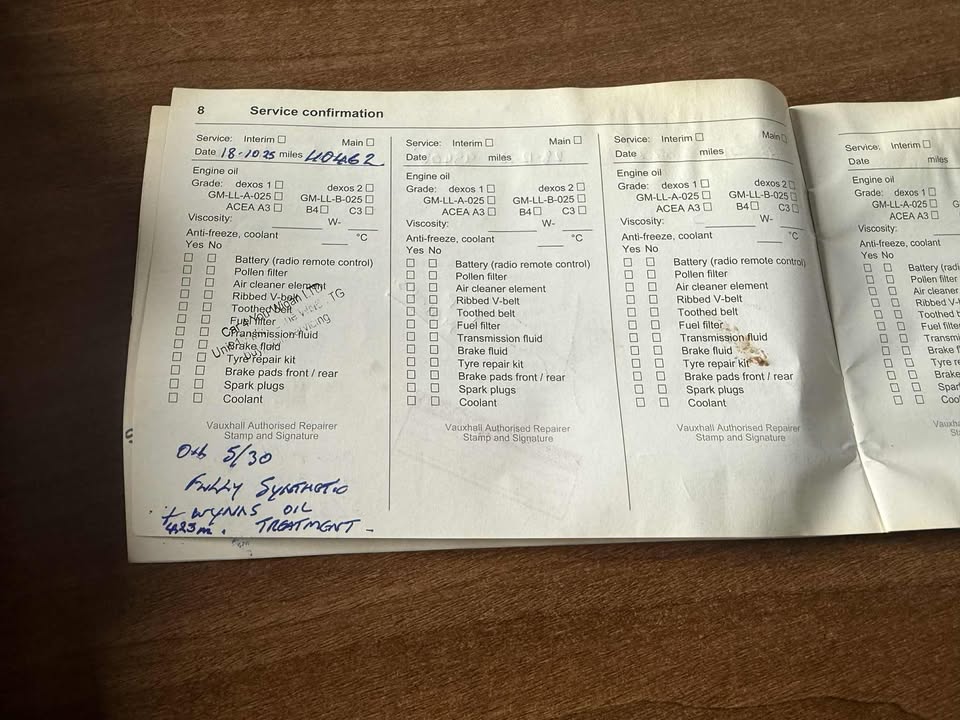 8 Service confirmation
Service: Interim Main
Date 18-10 25 miles 40462
Engine oil
Grade: dexos 1 dexos 2
GM-LL-A-025 GM-LL-B-025
ACEA A3 B4 C3
Viscosity: W-
Anti-freeze, coolant °C
Yes No
Battery (radio remote control)
Pollen filter
Air cleaner element
Ribbed V-belt
Toothed belt
Fuel filter
Transmission fluid
Brake fluid
Tyre repair kit
Brake pads front / rear
Spark plugs
Coolant
Wigan Ltd
TG
Vauxhall Authorised Repairer
Stamp and Signature
5/30
FULLY SYNTHETIC
+ WYNNS OIL
TREATMENT
Service: Interim Main
Date miles
Engine oil
Grade: dexos 1 dexos 2
GM-LL-A-025 GM-LL-B-025
ACEA A3 B4 C3
Viscosity: W-
Anti-freeze, coolant °C
Yes No
Battery (radio remote control)
Pollen filter
Air cleaner element
Ribbed V-belt
Toothed belt
Fuel filter
Transmission fluid
Brake fluid
Tyre repair kit
Brake pads front / rear
Spark plugs
Coolant
Vauxhall Authorised Repairer
Stamp and Signature
Service: Interim Main
Date miles
Engine oil
Grade: dexos 1 dexos 2
GM-LL-A-025 GM-LL-B-025
ACEA A3 B4 C3
Viscosity: W-
Anti-freeze, coolant °C
Yes No
Battery (radio remote control)
Pollen filter
Air cleaner element
Ribbed V-belt
Toothed belt
Fuel filter
Transmission fluid
Brake fluid
Tyre repair kit
Brake pads front / rear
Spark plugs
Coolant
Vauxhall Authorised Repairer
Stamp and Signature
Service: Interim
Date miles
Engine oil
Grade: dexos 1
GM-LL-A-025 G
ACEA A3
Viscosity:
Anti-freeze, coolant
Yes No
Battery (radi
Pollen filter
Air cleaner
Ribbed V-
Toothed b
Fuel filte
Transmi
Brake f
Tyre re
Brake
Spar
Cool
Vauxh
Sta